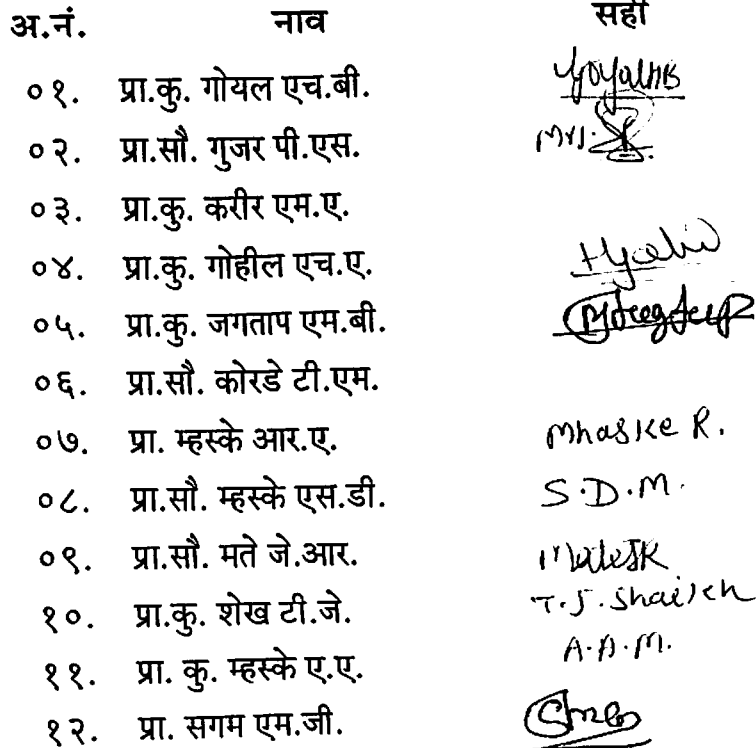 अ.नं. नाव सही
०१. प्रा.कु. गोयल एच.बी. GoyalHB
०२. प्रा.सौ. गुजर पी.एस. Mrs.
०३. प्रा.कु. करीर एम.ए.
०४. प्रा.कु. गोहील एच.ए.
०५. प्रा.कु. जगताप एम.बी.
०६. प्रा.सौ. कोरडे टी.एम.
०७. प्रा. म्हस्के आर.ए. Mhaske R.
०८. प्रा.सौ. म्हस्के एस.डी. S.D.M.
०९. प्रा.सौ. मते जे.आर.
१०. प्रा.कु. शेख टी.जे. T.J. Shaikh
११. प्रा. कु. म्हस्के ए.ए. A.A.M.
१२. प्रा. सगम एम.जी.